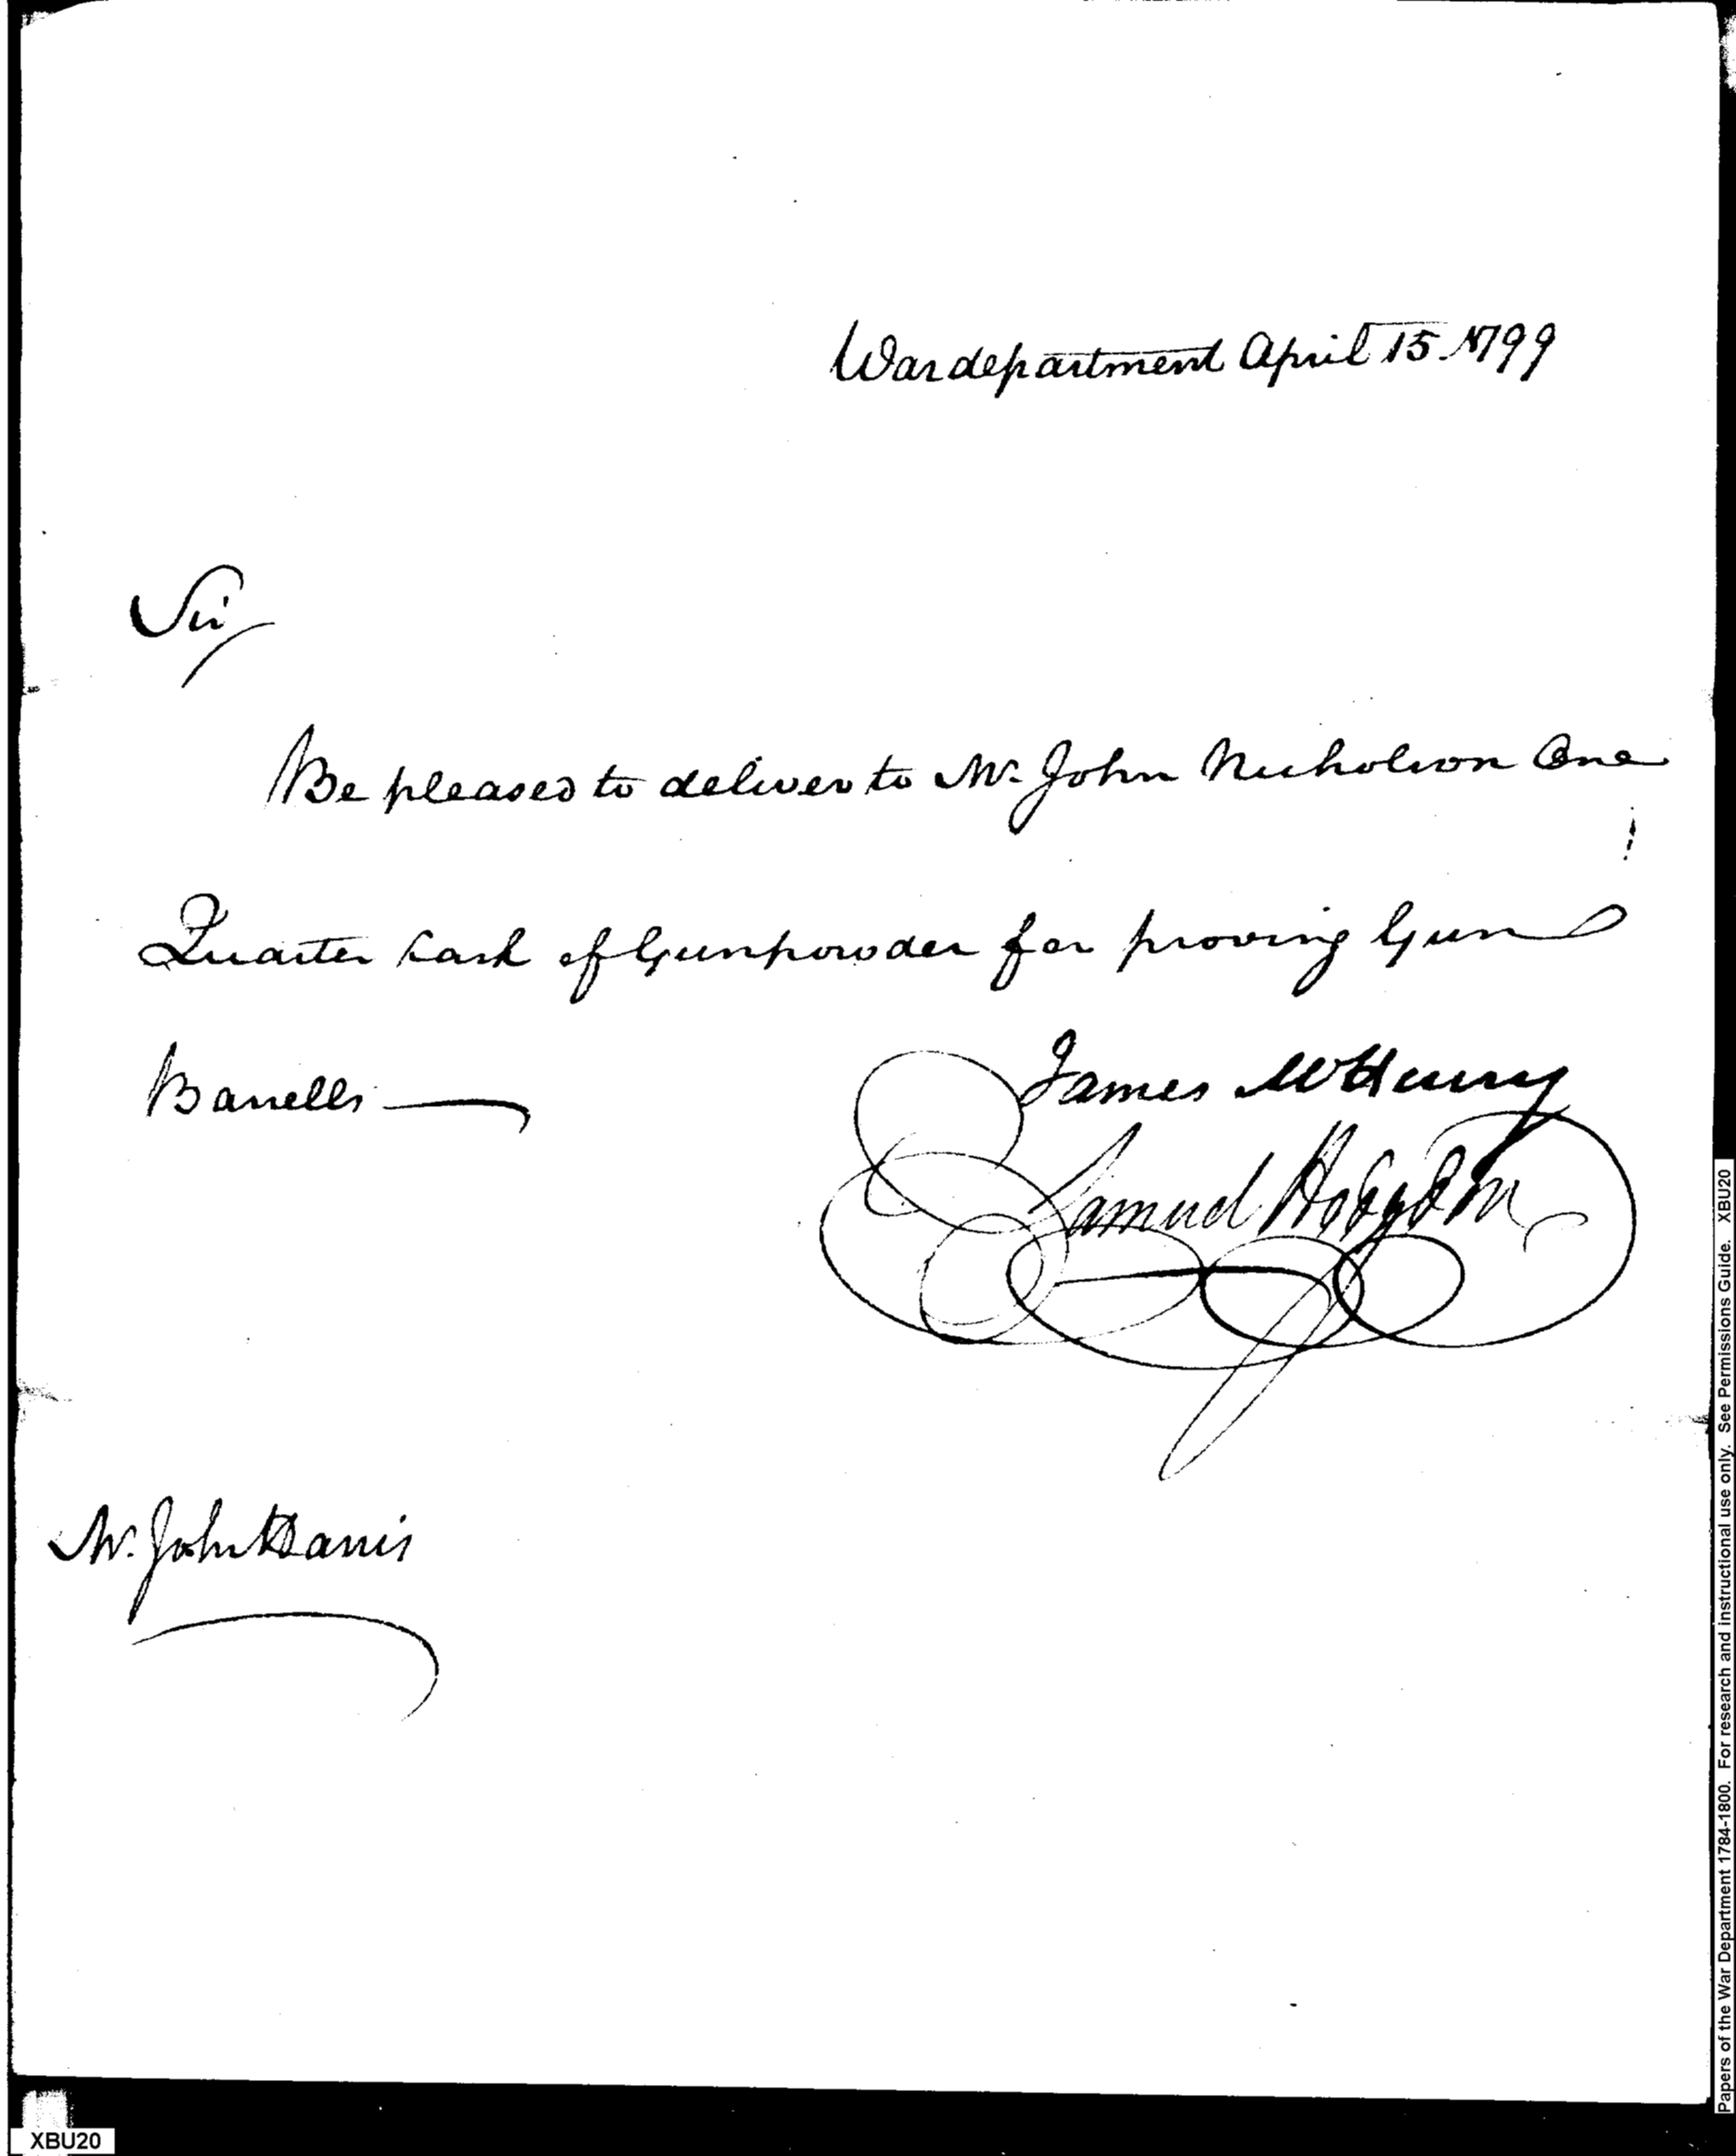 War department April 15. 1799
Sir
Be pleased to deliver to Mr. John Nicholson One
Quarter Cask of Gunpowder for proving Gun
Barrells
James McHenry
Samuel Hodgdon
Mr. John Harris
Papers of the War Department 1784-1800. For research and instructional use only. See Permissions Guide. XBU20
XBU20